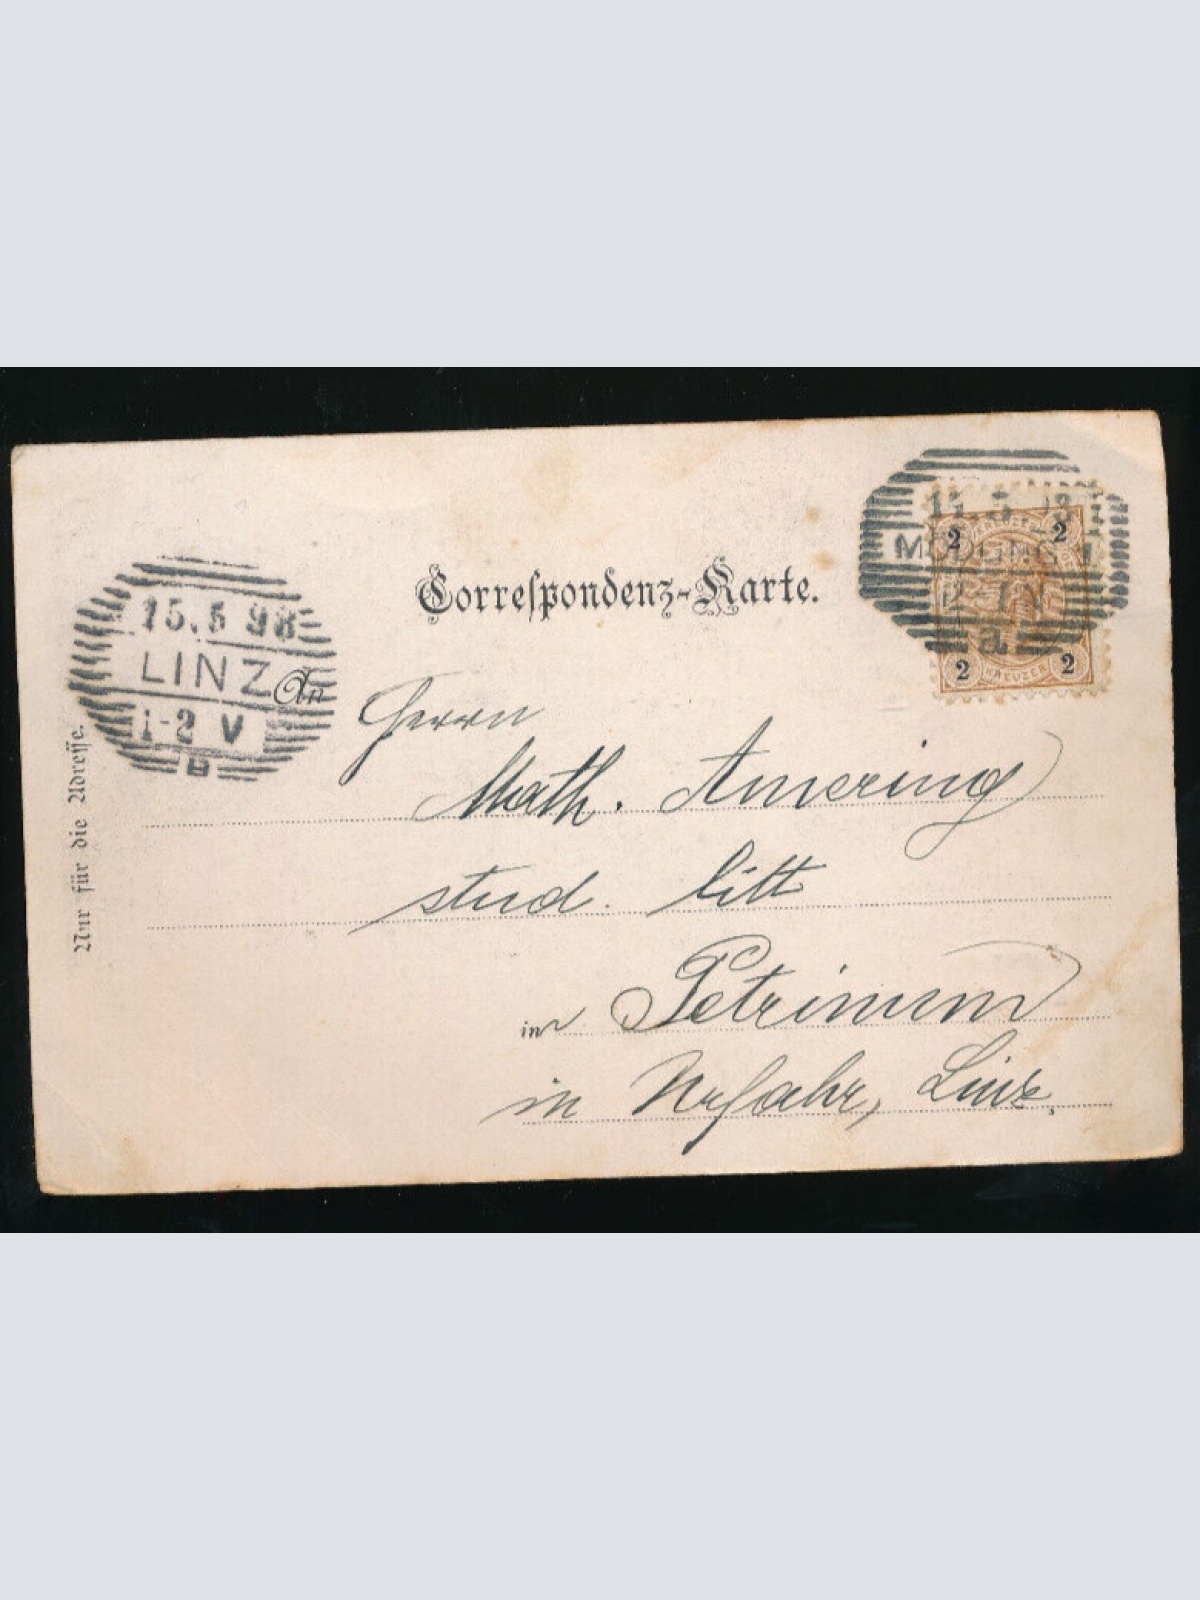 Correspondenz-Karte.
15.5 98
LINZ
1-2 V
B
MÖDLING 1
a
2 2
2 KREUZER 2
An
Herrn
Math. Amering
stud. litt
in Petrinum
in Urfahr, Linz,
Nur für die Adresse.